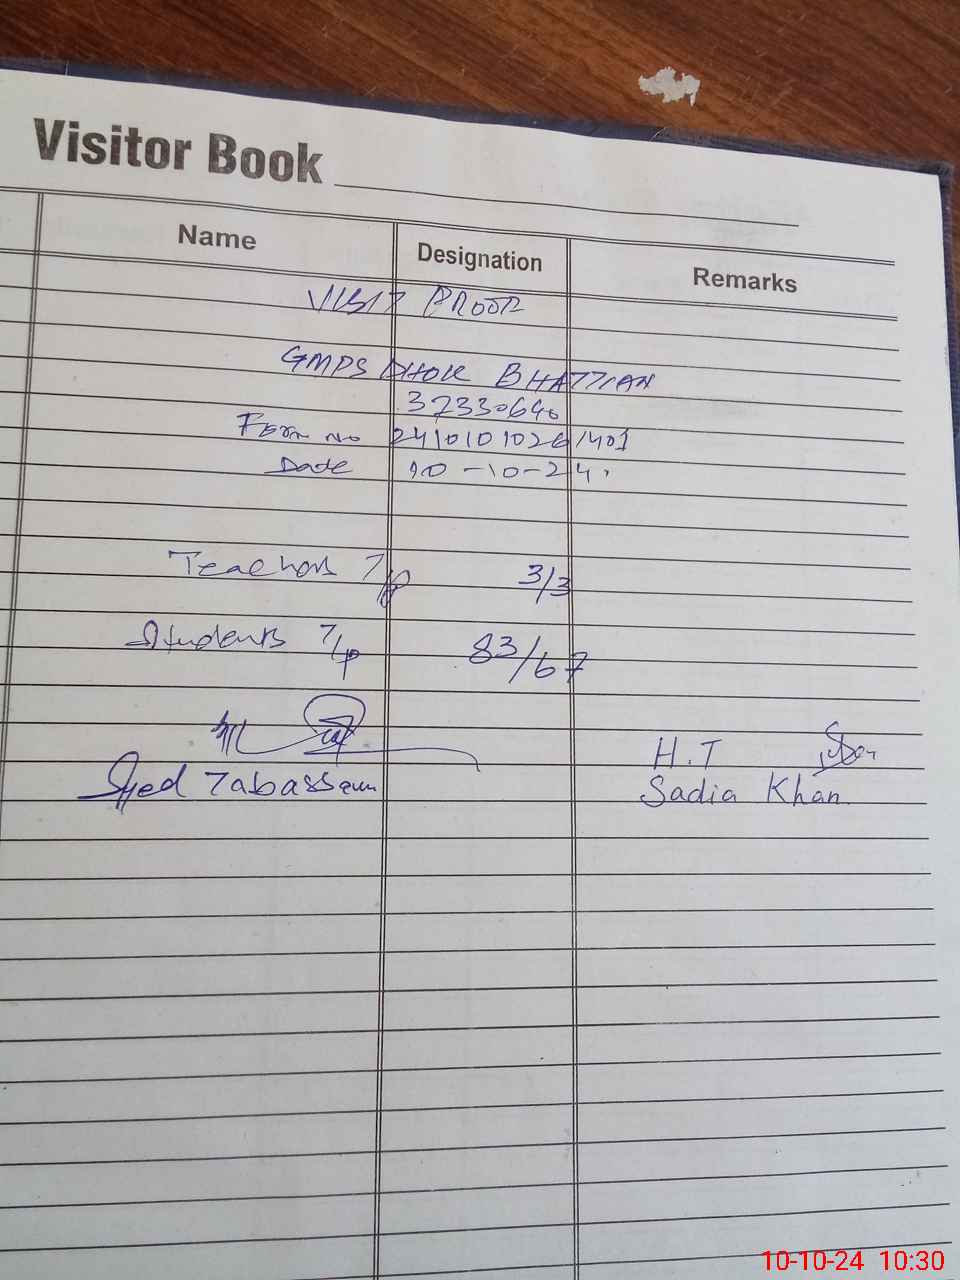 Visitor Book
Name Designation Remarks
VISIT PROOF
GMPS DHOK BHATTIAN
37330640
Form no 24101010261401
Date 10-10-24.
Teachers T/P 3/3
Students T/P 83/67
H.T
Syed Tabassum Sadia Khan
10-10-24 10:30